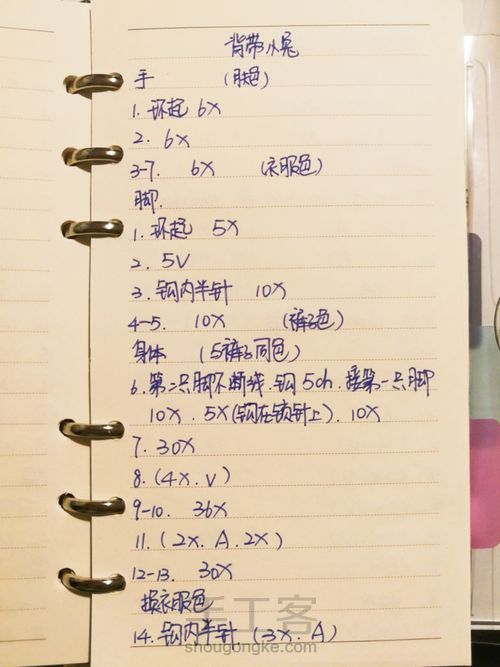 背带小兔
手 (肤色)
1. 环起 6X
2. 6X
3-7. 6X (衣服色)
脚.
1. 环起 5X
2. 5V
3. 钩内半针 10X
4-5. 10X (裤子色)
身体 (与裤子同色)
6. 第二只脚不断线. 钩5ch. 接第一只脚
10X. 5X(钩在锁针上). 10X
7. 30X
8. (4X. V)
9-10. 36X
11. (2X. A. 2X)
12-13. 30X
换衣服色
14. 钩内半针 (3X. A)
手工客
shougongke.com